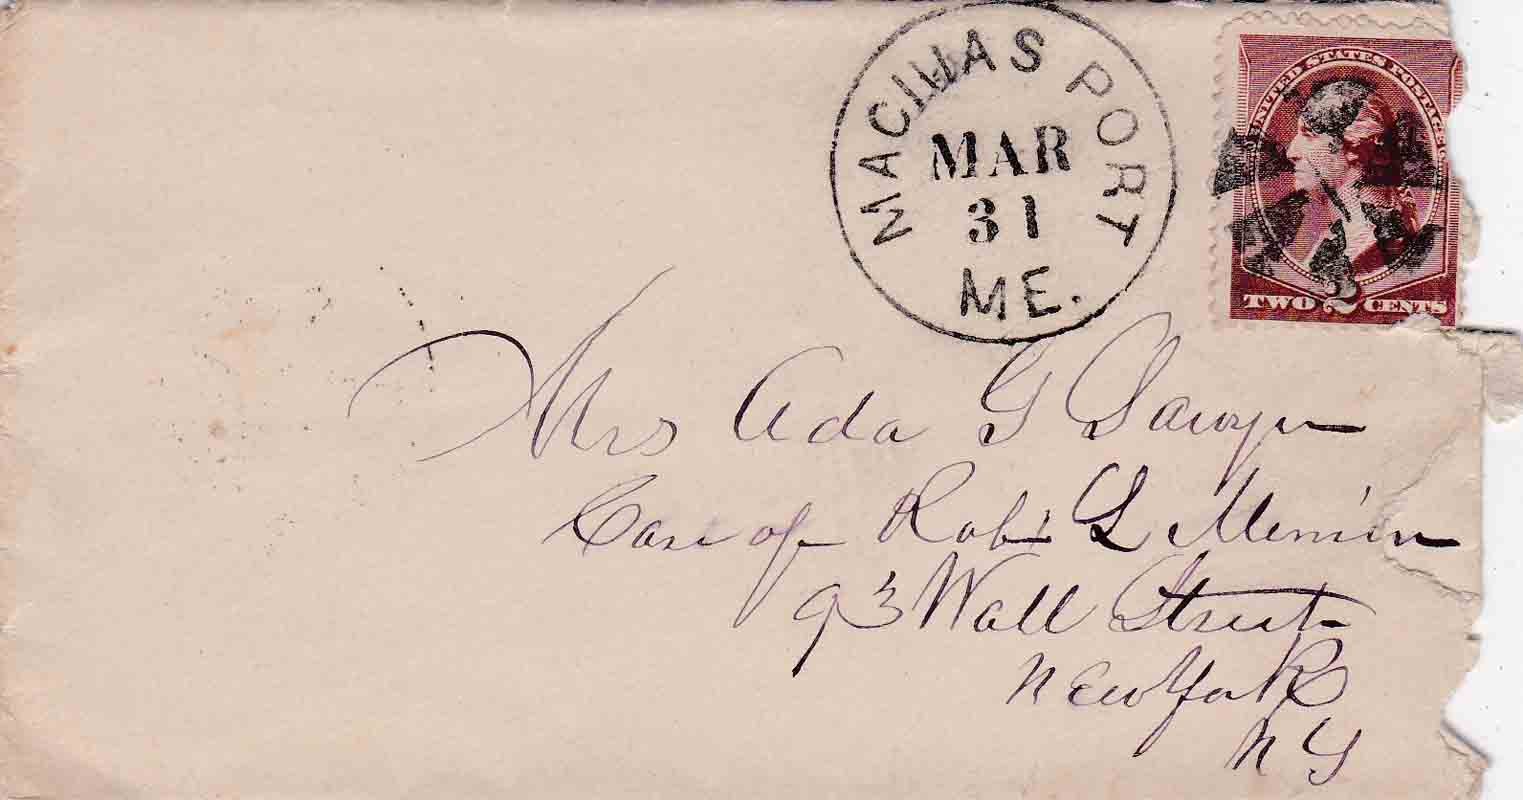 MACHIAS PORT
MAR
31
ME.
UNITED STATES POSTAGE
TWO 2 CENTS
Mrs Ada G Sawyer
Care of Robt L
93 Wall Street
New York
N Y